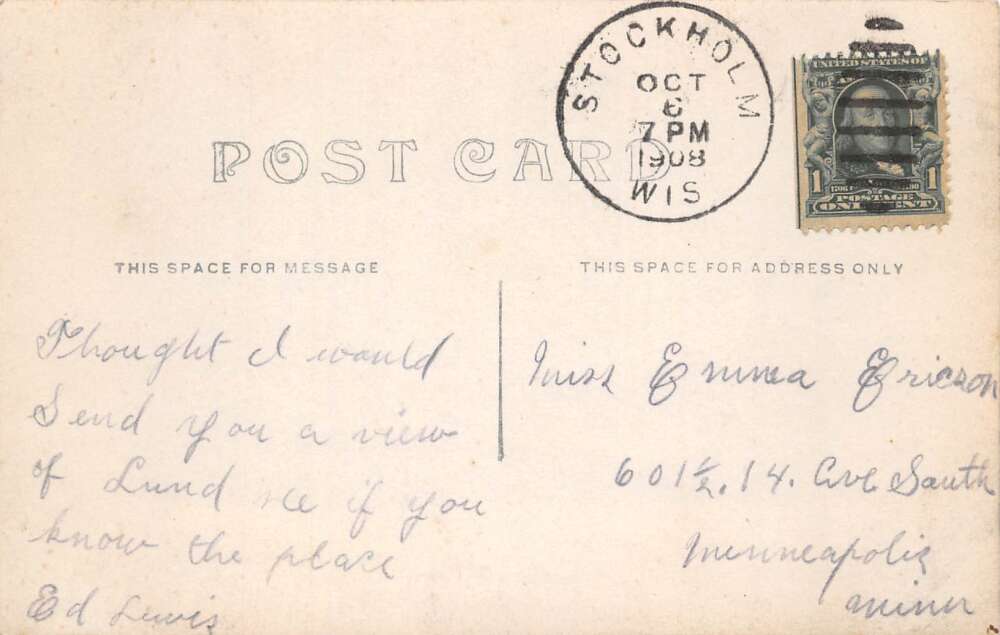 POST CARD
STOCKHOLM
OCT
6
7 PM
1908
WIS
UNITED STATES OF
1 1
POSTAGE
ONE CENT
THIS SPACE FOR MESSAGE
THIS SPACE FOR ADDRESS ONLY
Thought I would
Send you a view
of Lund see if you
know the place
Ed Lewis
Miss Emma Ericson
601 1/2. 14. Ave South
Minneapolis
Minn